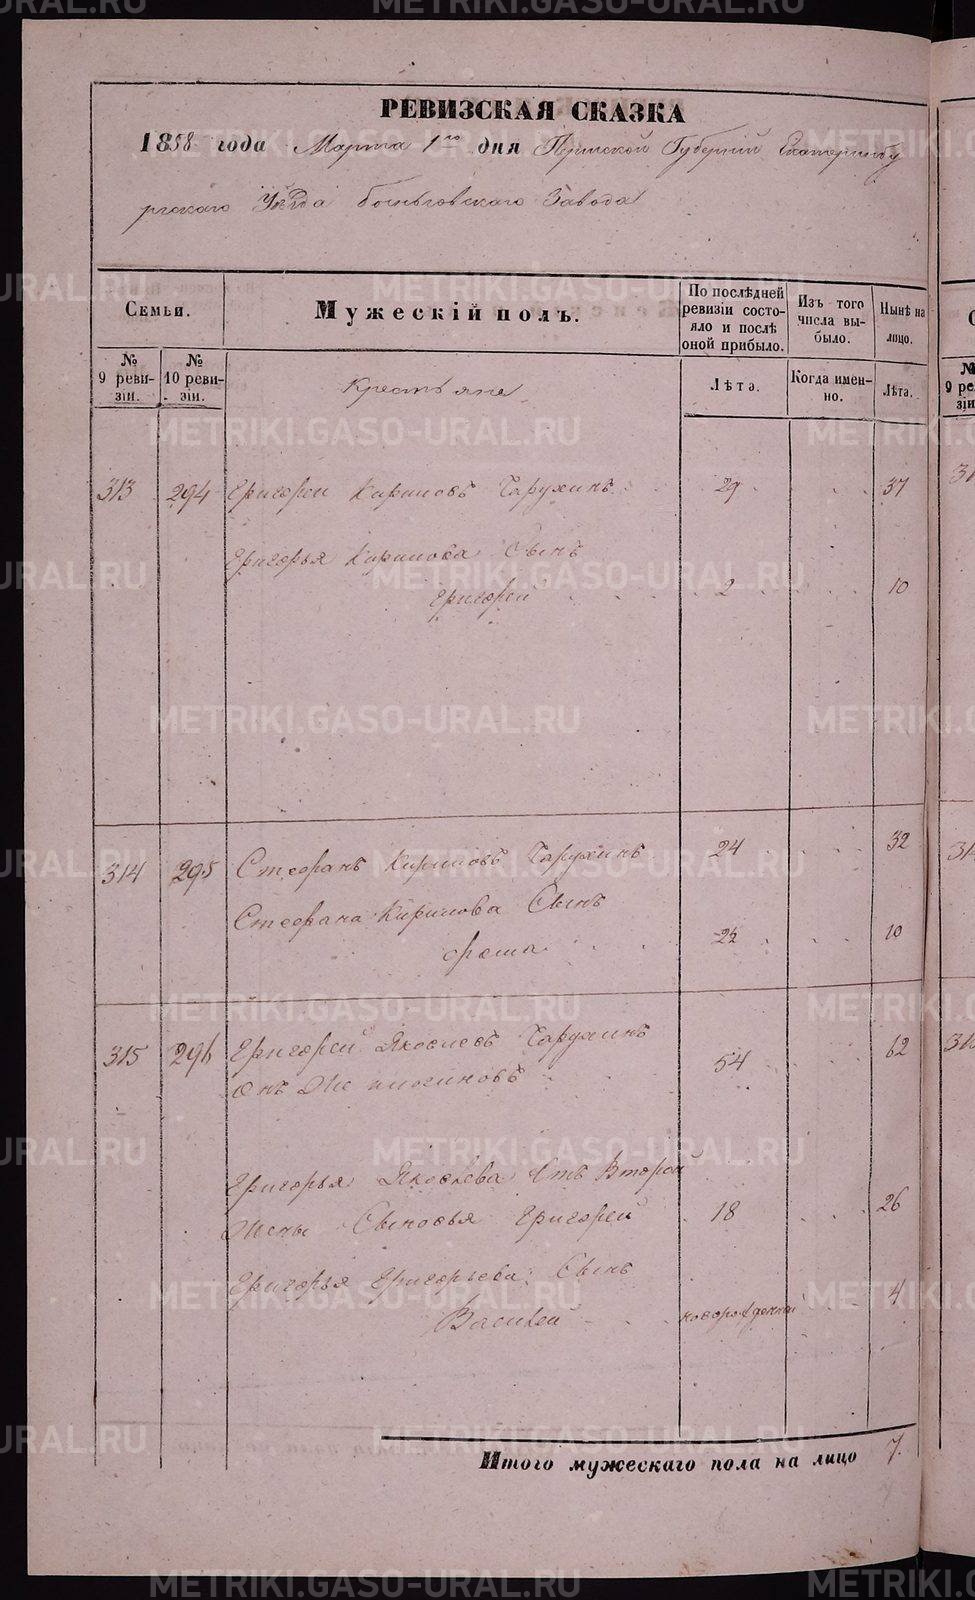 РЕВИЗСКАЯ СКАЗКА
1858 года Марта 1го дня Пермской Губернии Екатеринбу
ргскаго Уѣзда Завода
Семьи.
Мужескій полъ.
По послѣдней ревизіи состояло и послѣ оной прибыло.
Изъ того числа выбыло.
Нынѣ на лицо.
№ 9 ревизіи.
№ 10 ревизіи.
Крестьяне
Лѣта.
Когда именно.
Лѣта.
313 294 Григореи Кириловъ Чарухинъ 29 37
Григорья Кирилова Сынъ
Григорей 2 10
314 295 Стефанъ Кириловъ Чарухинъ 24 32
Стефана Кирилова Сынъ
Фома 10
315 296 Григорей Яковлевъ Чарухинъ 54 62
Онъ Же
Григорья Яковлева Отъ Второй
Жены Сыновья Григорей 18 26
Григорья Григорьева Сынъ
Василей новорожденный 4
Итого мужескаго пола на лицо 7.
METRIKI.GASO-URAL.RU